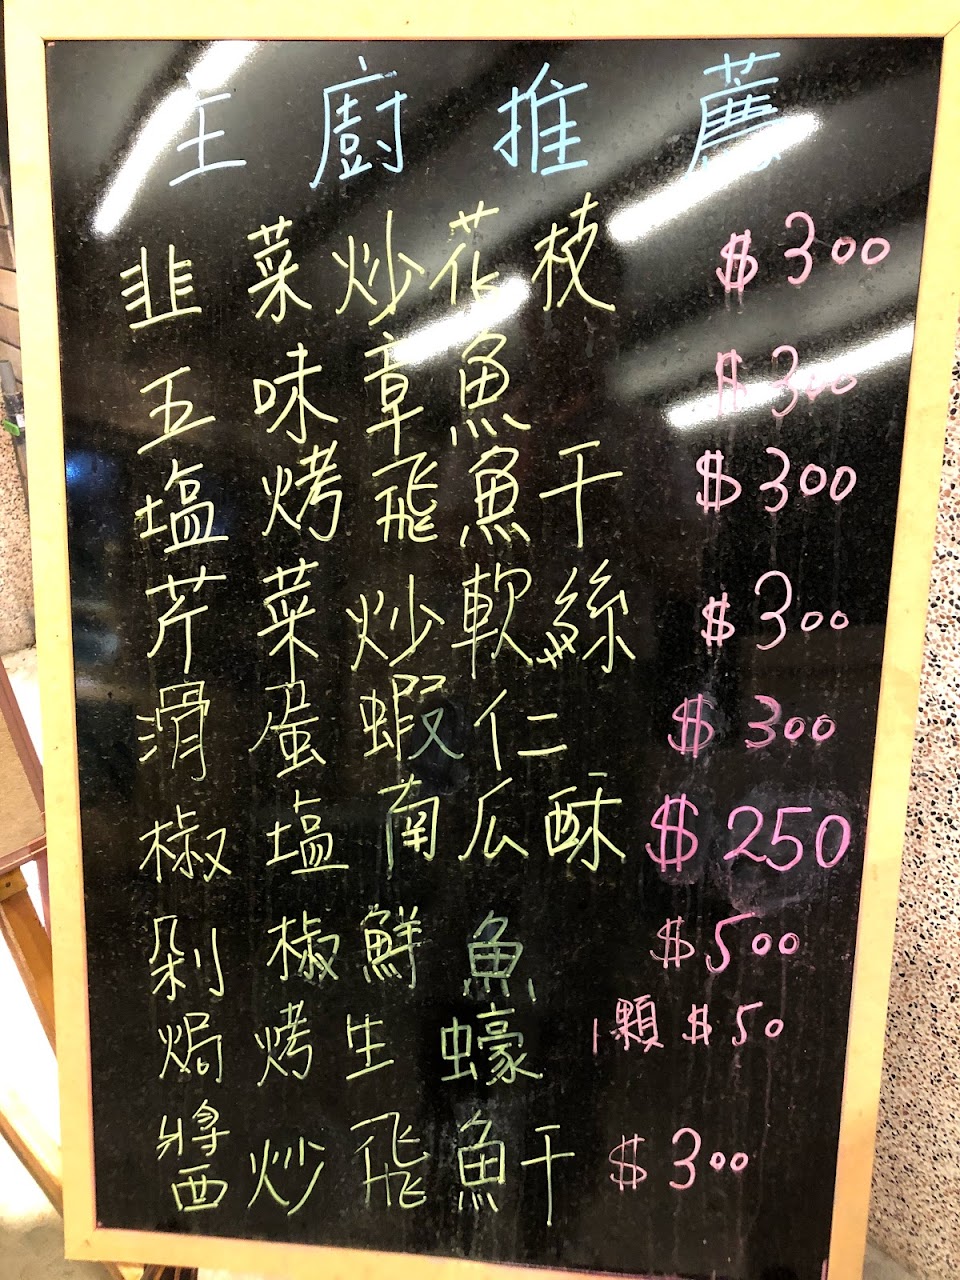 主廚推薦
韭菜炒花枝 $300
五味章魚 $300
塩烤飛魚干 $300
芹菜炒軟絲 $300
滑蛋蝦仁 $300
椒塩南瓜酥 $250
剁椒鮮魚 $500
焗烤生蠔 1顆 $50
醬炒飛魚干 $300